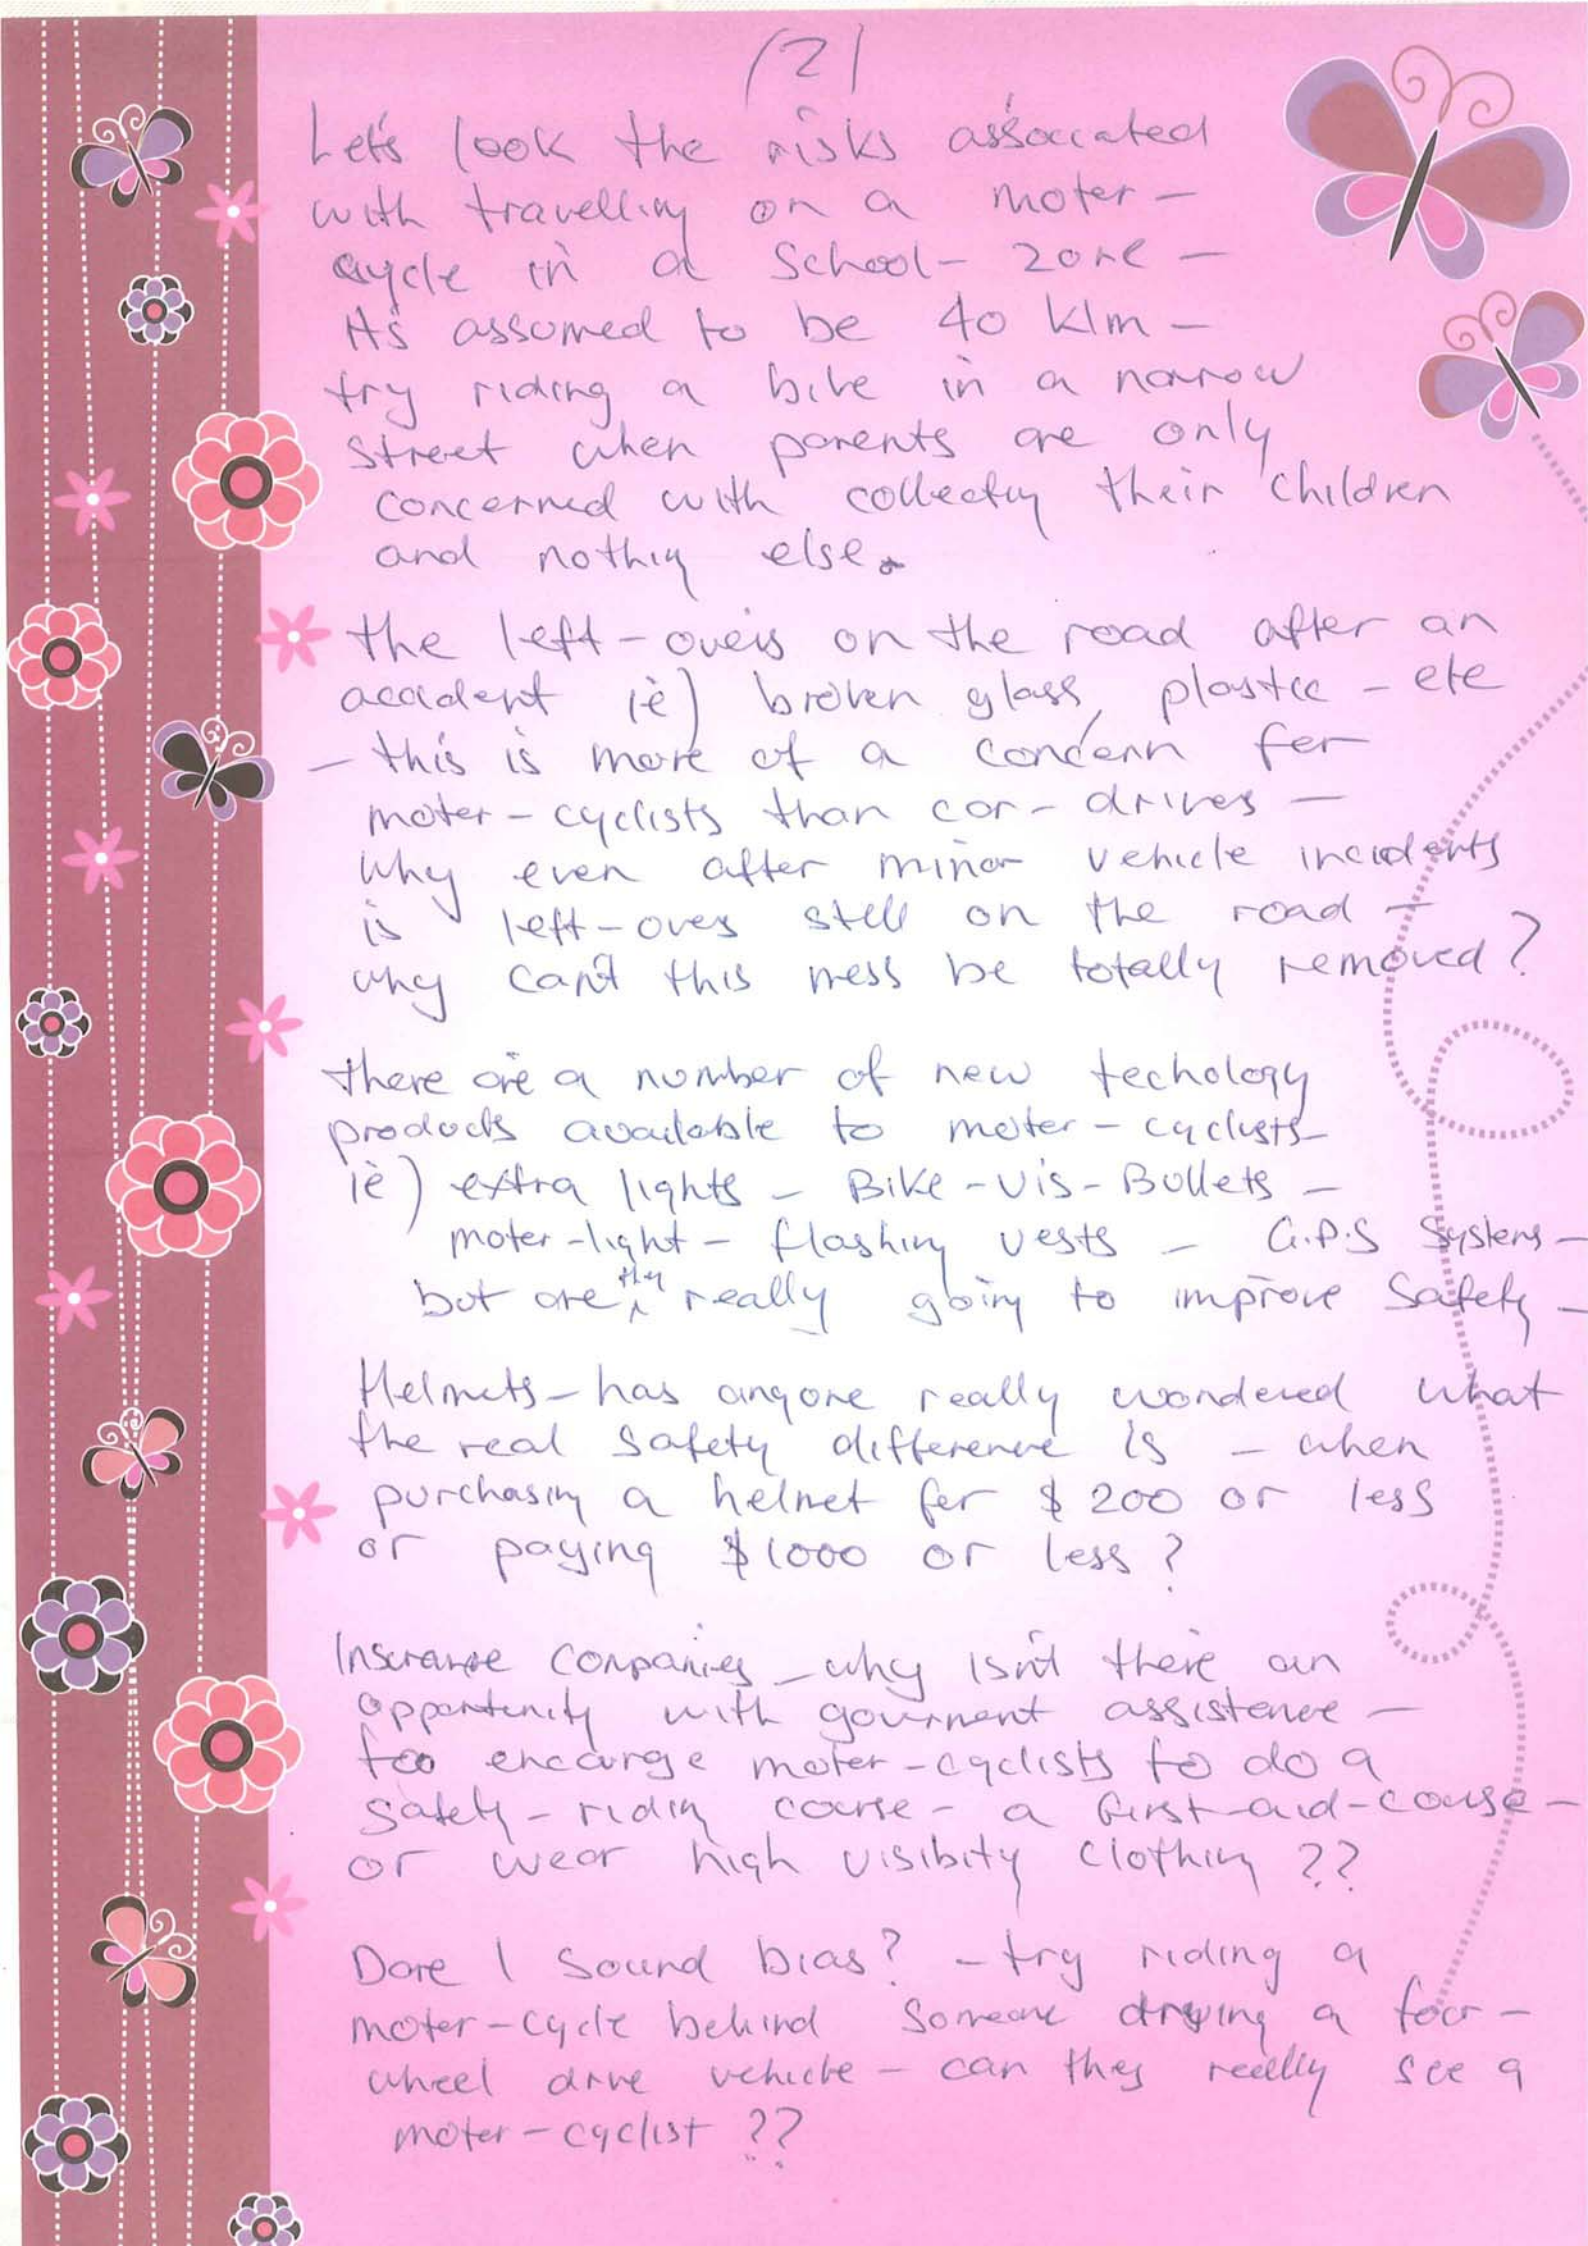 (2)
Let's look the risks associated
with travelling on a moter-
cycle in a School-zone -
It's assumed to be 40 klm -
try riding a bike in a narrow
street when parents are only
concerned with collecting their children
and nothing else.
the left-overs on the road after an
accident ie) broken glass, plastic - etc
- this is more of a concern for
moter-cyclists than car-drives -
Why even after minor vehicle incidents
is left-overs still on the road -
why can't this mess be totally removed?
there are a number of new techology
products available to moter-cyclists-
ie) extra lights - Bike-Vis-Bullets -
moter-light - flashing vests - G.P.S Systems -
but are they really going to improve Safety -
Helmets - has anyone really wondered what
the real safety difference is - when
purchasing a helmet for $200 or less
or paying $1000 or less?
Insurance Companies - why isn't there an
oppertenity with gournment assistence -
too encourge moter-cyclists to do a
safety-riding course - a first-aid-course -
or wear high visibity clothing ??
Dare I sound bias? - try riding a
moter-cycle behind Someone driving a four-
wheel drive vehicle - can they really see a
moter-cyclist ??